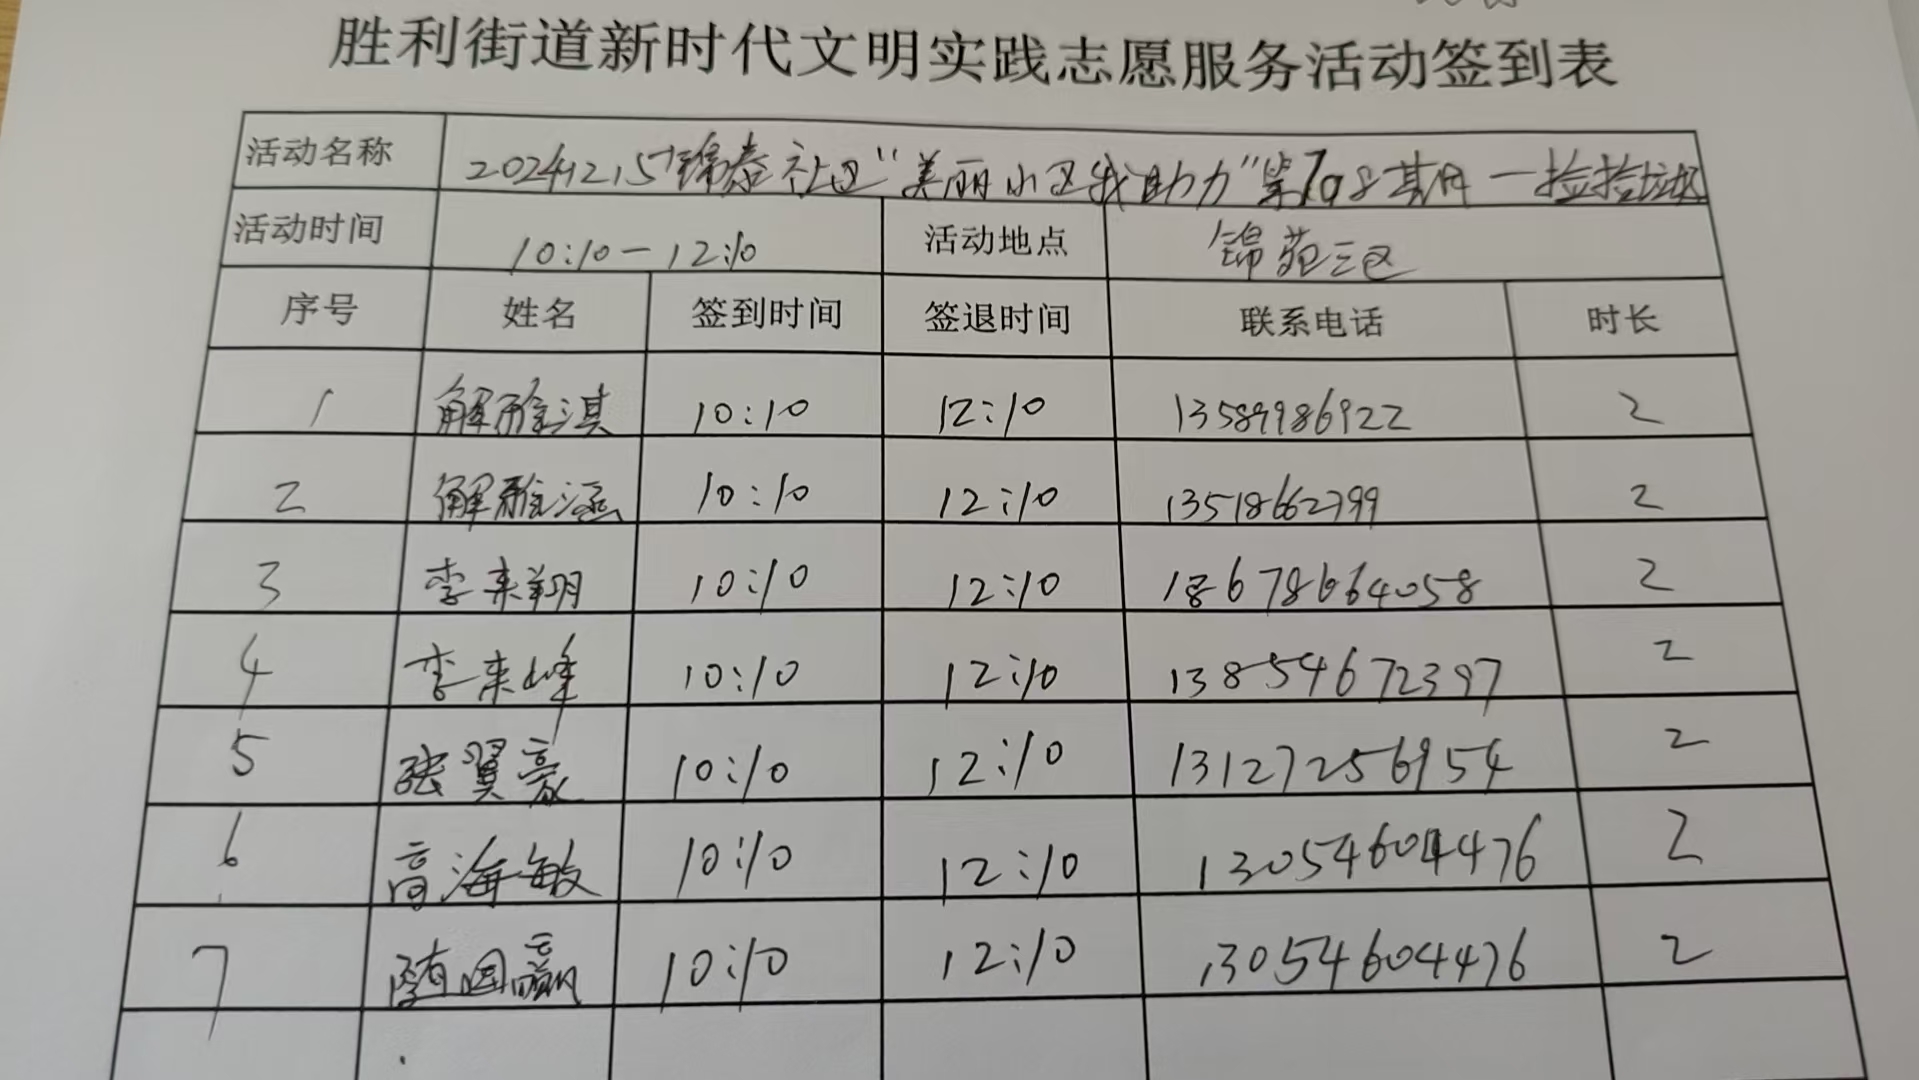 胜利街道新时代文明实践志愿服务活动签到表
活动名称 2024.12.15锦泰社区“美丽小区我助力”第798期一捡捡垃圾
活动时间 10:10-12:10 活动地点 锦苑三区
序号 姓名 签到时间 签退时间 联系电话 时长
1 解雅淇 10:10 12:10 13589986922 2
2 解雅涵 10:10 12:10 13518662799 2
3 李来翔 10:10 12:10 18678664058 2
4 李来峰 10:10 12:10 13854672397 2
5 张翼豪 10:10 12:10 13127256954 2
6 高海敏 10:10 12:10 13054604476 2
7 隋国赢 10:10 12:10 13054604476 2